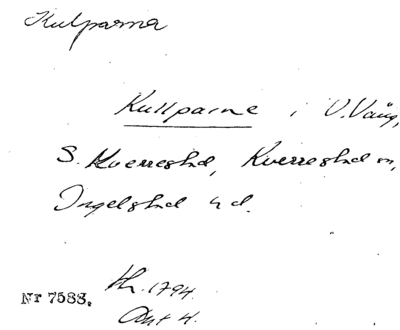 Kulparna
Kullparne i V. Väng,
S. Kverrestad, Kverrestad sn,
Ingelstad hd.
Nr 7588. Th. 1794.
Akt 4.